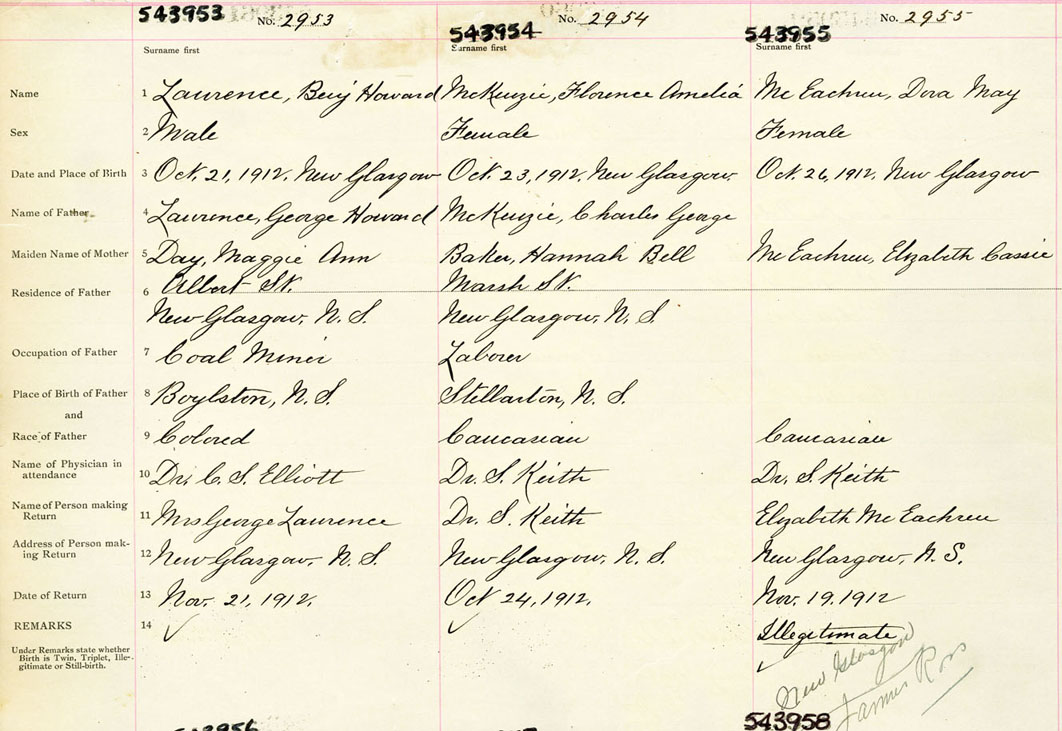 543953 No. 2953
543954 No. 2954
543955 No. 2955
Surname first Surname first Surname first
Name 1 Laurence, Benj Howard McKenzie, Florence Amelia Mc Eachren, Dora May
Sex 2 Male Female Female
Date and Place of Birth 3 Oct. 21, 1912. New Glasgow Oct. 23, 1912. New Glasgow. Oct. 26, 1912. New Glasgow
Name of Father 4 Laurence, George Howard McKenzie, Charles George
Maiden Name of Mother 5 Day, Maggie Ann Baker, Hannah Bell Mc Eachren, Elizabeth Cassie
Residence of Father 6 Albert St. Marsh St.
New Glasgow, N. S. New Glasgow, N. S.
Occupation of Father 7 Coal Miner Laborer
Place of Birth of Father 8 Boylston, N. S. Stellarton, N. S.
and
Race of Father 9 Colored Caucasian Caucasian
Name of Physician in
attendance 10 Dr. C. S. Elliott Dr. S. Keith Dr. S. Keith
Name of Person making
Return 11 Mrs George Laurence Dr. S. Keith Elizabeth Mc Eachren
Address of Person mak-
ing Return 12 New Glasgow, N. S. New Glasgow, N. S. New Glasgow, N. S.
Date of Return 13 Nov. 21, 1912. Oct 24, 1912. Nov. 19. 1912
REMARKS 14 Illegitimate
Under Remarks state whether
Birth is Twin, Triplet, Ille-
gitimate or Still-birth.
New Glasgow
Ross
543956
543958